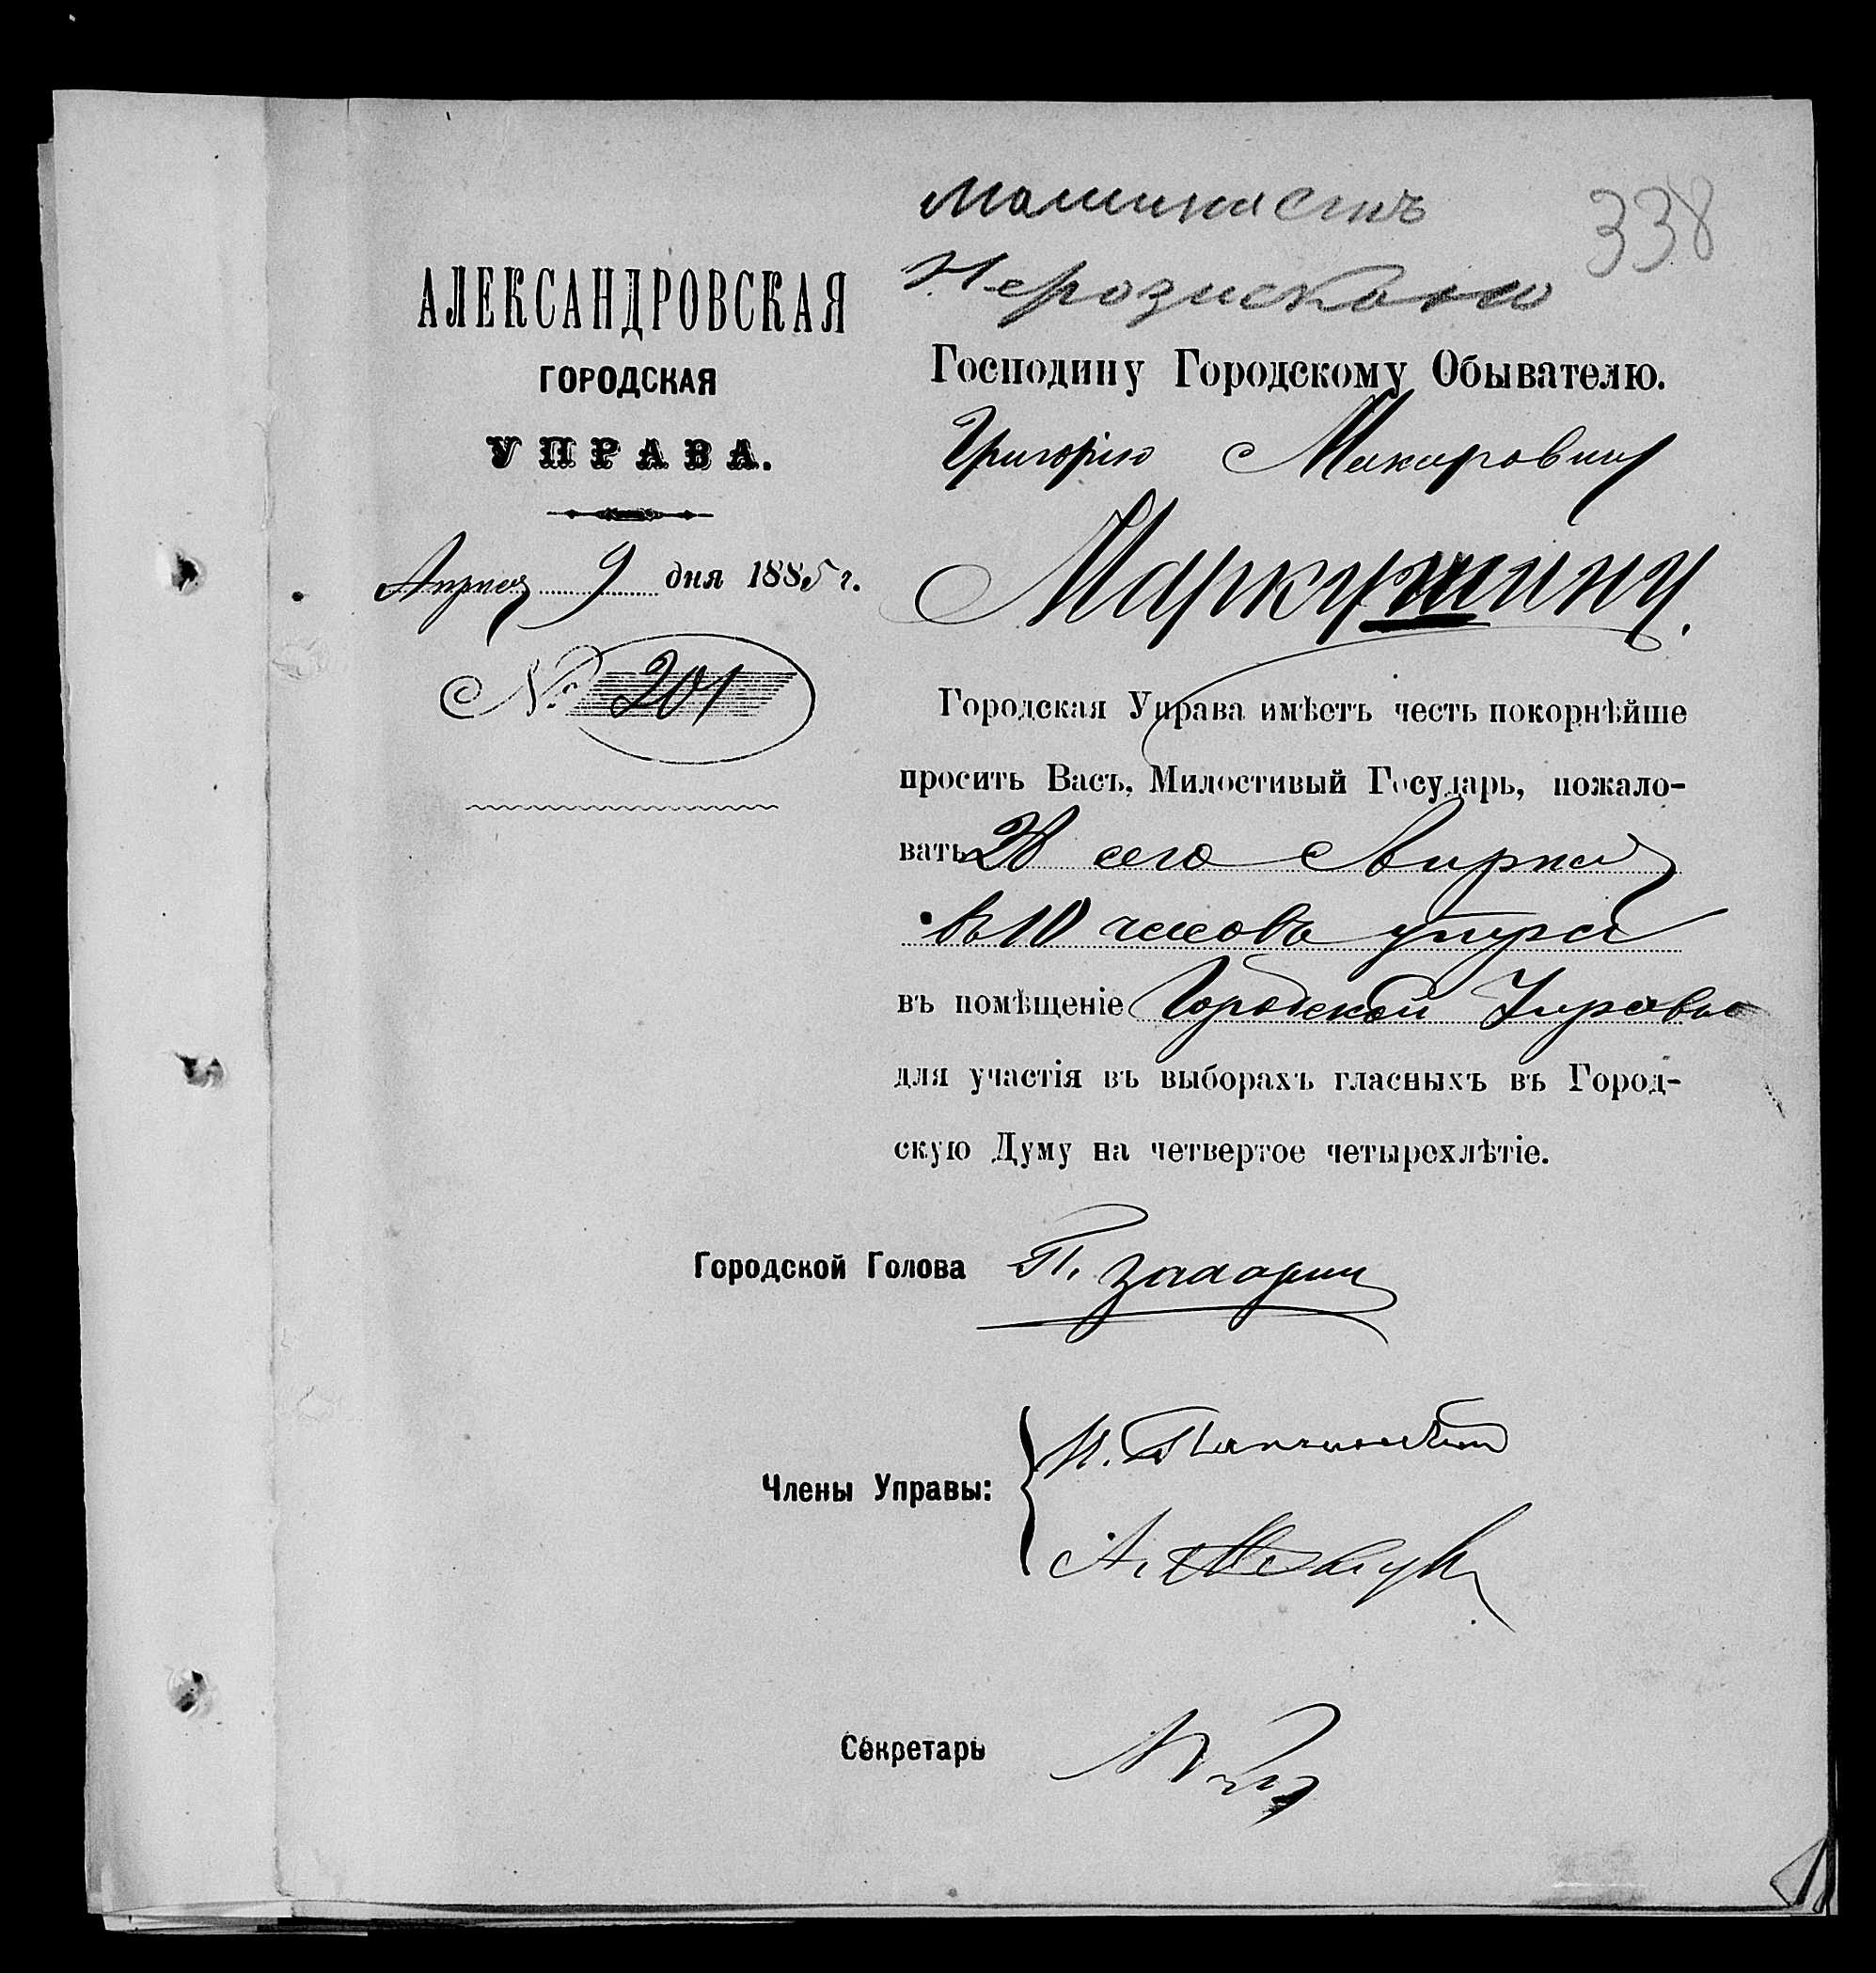 Машинистъ
338
Не розисконо
АЛЕКСАНДРОВСКАЯ
ГОРОДСКАЯ
УПРАВА.
Апрѣля 9 дня 1885 г.
№ 201
Господину Городскому Обывателю.
Григорію Макаровичу
Маркушину.
Городская Управа имѣетъ честь покорнѣйше
просить Васъ, Милостивый Государь, пожало-
вать 28 сего Апрѣля
въ 10 часовъ утра
въ помѣщеніе Городской Управы
для участія въ выборахъ гласныхъ въ Город-
скую Думу на четвертое четырехлѣтіе.
Городской Голова П. Захарин
Члены Управы:
Секретарь